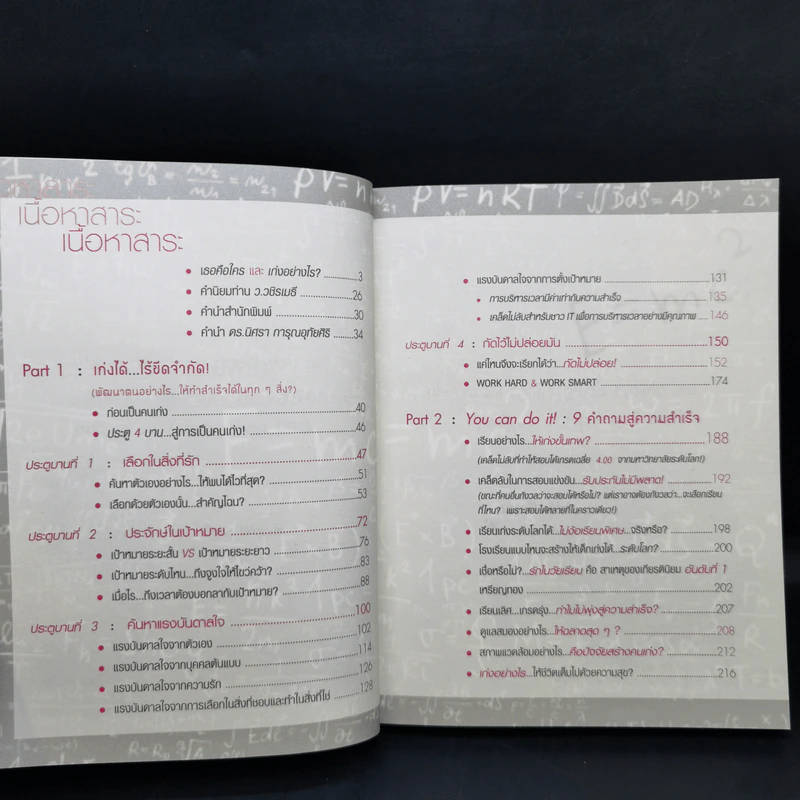 เนื้อหาสาระ
เนื้อหาสาระ
• เธอคือใคร และ เก่งอย่างไร? ............3
• คำนิยมท่าน ว.วชิรเมธี ............26
• คำนำสำนักพิมพ์ ............30
• คำนำ ดร.นิศรา การุณอุทัยศิริ ............34
Part 1 : เก่งได้...ไร้ขีดจำกัด!
(พัฒนาตนอย่างไร...ให้ทำสำเร็จได้ในทุก ๆ สิ่ง?)
• ก่อนเป็นคนเก่ง ............40
• ประตู 4 บาน...สู่การเป็นคนเก่ง! ............46
ประตูบานที่ 1 : เลือกในสิ่งที่รัก ............47
• ค้นหาตัวเองอย่างไร...ให้พบได้ไวที่สุด? ............51
• เลือกด้วยตัวเองนั้น...สำคัญไฉน? ............53
ประตูบานที่ 2 : ประจักษ์ในเป้าหมาย ............72
• เป้าหมายระยะสั้น VS เป้าหมายระยะยาว ............76
• เป้าหมายระดับไหน...ถึงจูงใจให้ไขว่คว้า? ............83
• เมื่อไร...ถึงเวลาต้องบอกลากับเป้าหมาย? ............88
ประตูบานที่ 3 : ค้นหาแรงบันดาลใจ ............100
• แรงบันดาลใจจากตัวเอง ............102
• แรงบันดาลใจจากบุคคลต้นแบบ ............114
• แรงบันดาลใจจากความรัก ............126
• แรงบันดาลใจจากการเลือกในสิ่งที่ชอบและทำในสิ่งที่ใช่ ............128
• แรงบันดาลใจจากการตั้งเป้าหมาย ............131
• การบริหารเวลามีค่าเท่ากับความสำเร็จ ............135
• เคล็ดไม่ลับสำหรับชาว IT เพื่อการบริหารเวลาอย่างมีคุณภาพ ....146
ประตูบานที่ 4 : กัดไว้ไม่ปล่อยมัน ............150
• แค่ไหนจึงจะเรียกได้ว่า...กัดไม่ปล่อย! ............152
• WORK HARD & WORK SMART ............174
Part 2 : You can do it! : 9 คำถามสู่ความสำเร็จ
• เรียนอย่างไร...ให้เก่งขั้นเทพ? ............188
(เคล็ดไม่ลับที่ทำให้สอบได้เกรดเฉลี่ย 4.00 จากมหาวิทยาลัยระดับโลก!)
• เคล็ดลับในการสอบแข่งขัน...รับประกันไม่มีพลาด! ............192
(ขณะที่คนอื่นกังวลว่าจะสอบได้หรือไม่? แต่เราอาจต้องกังวลว่า...จะเลือกเรียน
ที่ไหน? เพราะสอบได้หลายที่ในคราวเดียว!)
• เรียนเก่งระดับโลกได้...ไม่ง้อเรียนพิเศษ...จริงหรือ? ............198
• โรงเรียนแบบไหนจะสร้างให้เด็กเก่งได้...ระดับโลก? ............200
• เชื่อหรือไม่?...รักในวัยเรียน คือ สาเหตุของเกียรตินิยม อันดับที่ 1
เหรียญทอง ............202
• เรียนเลิศ...เกรดรุ่ง...ทำไมไม่พุ่งสู่ความสำเร็จ? ............207
• ดูแลสมองอย่างไร...ให้ฉลาดสุด ๆ ? ............208
• สภาพแวดล้อมอย่างไร...คือปัจจัยสร้างคนเก่ง? ............212
• เก่งอย่างไร...ให้ชีวิตเต็มไปด้วยความสุข? ............216